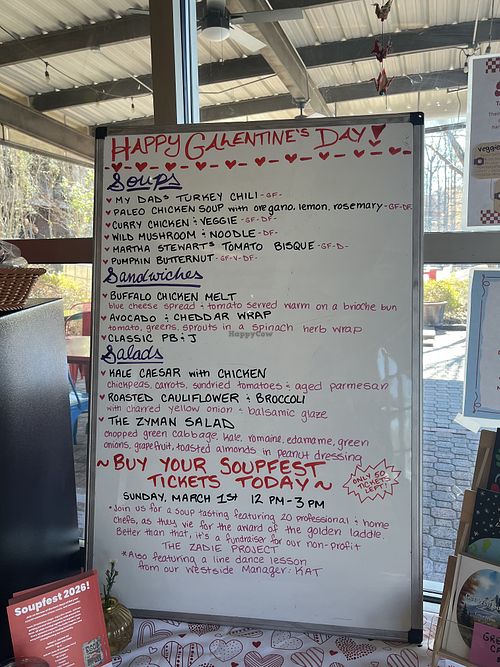 HAPPY GALENTINE'S DAY!
Soups
MY DAD'S TURKEY CHILI -GF-
PALEO CHICKEN SOUP with oregano, lemon, rosemary -GF-DF
CURRY CHICKEN & VEGGIE -GF-DF-
WILD MUSHROOM & NOODLE -DF-
MARTHA STEWART'S TOMATO BISQUE -GF-D-
PUMPKIN BUTTERNUT -GF-V-DF-
Sandwiches
BUFFALO CHICKEN MELT
blue cheese spread & tomato served warm on a brioche bun
AVOCADO & CHEDDAR WRAP
tomato, greens, sprouts in a spinach herb wrap
CLASSIC PB & J
Salads
KALE CAESAR with CHICKEN
chickpeas, carrots, sundried tomatoes & aged parmesan
ROASTED CAULIFLOWER & BROCCOLI
with charred yellow onion & balsamic glaze
THE ZYMAN SALAD
chopped green cabbage, kale, romaine, edamame, green
onions, grapefruit, toasted almonds in peanut dressing
~BUY YOUR SOUPFEST
TICKETS TODAY~
ONLY 50
TICKETS
LEFT!
SUNDAY, MARCH 1st 12 PM-3 PM
*Join us for a soup tasting featuring 20 professional & home
chefs, as they vie for the award of the golden laddle.
Better than that, it's a fundraiser for our non-profit
THE ZADIE PROJECT
*Also featuring a line dance lesson
from our Westside Manager: KAT
Soupfest 2026!
HappyCow